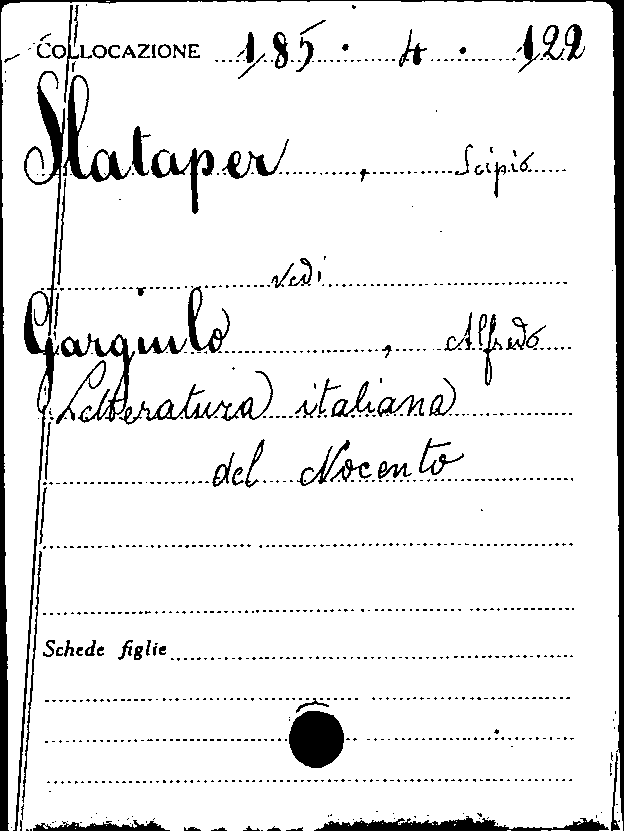 COLLOCAZIONE 185 . 4 . 122
Slataper, Scipio
vedi
Gargiulo, Alfredo
Letteratura italiana
del Nocento
Schede figlie